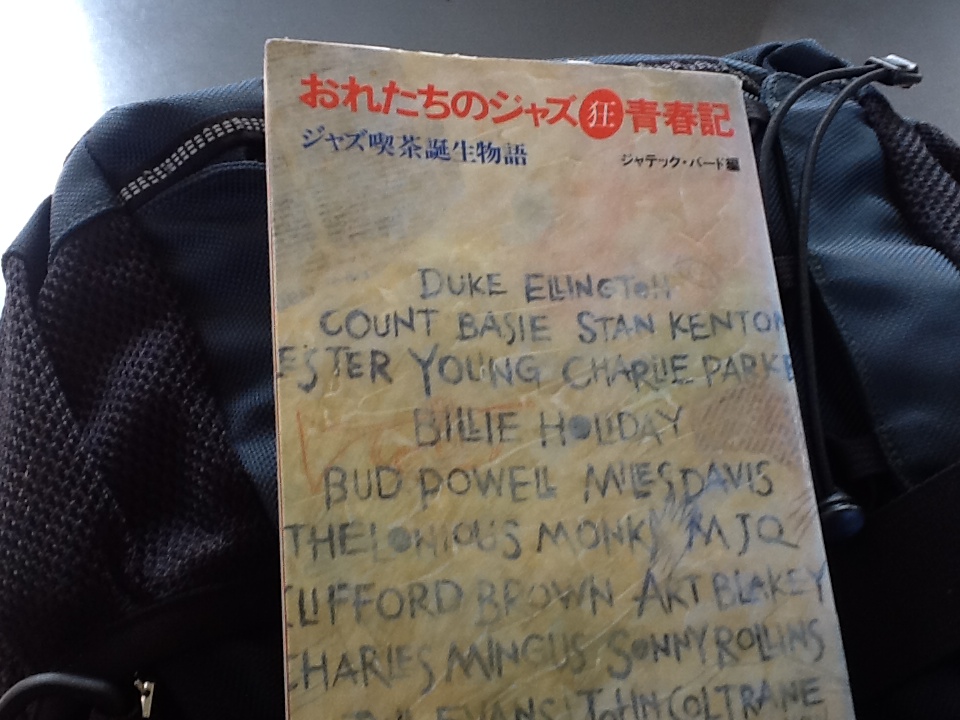 おれたちのジャズ狂青春記
ジャズ喫茶誕生物語
ジャテック・バード編
DUKE ELLINGTON
COUNT BASIE STAN KENTON
ESTER YOUNG CHARLIE PARKE
BILLIE HOLIDAY
BUD POWELL MILES DAVIS
THELONIOUS MONK MJQ
CLIFFORD BROWN ART BLAKEY
CHARLES MINGUS SONNY ROLLINS
EVANS JOHN COLTRANE